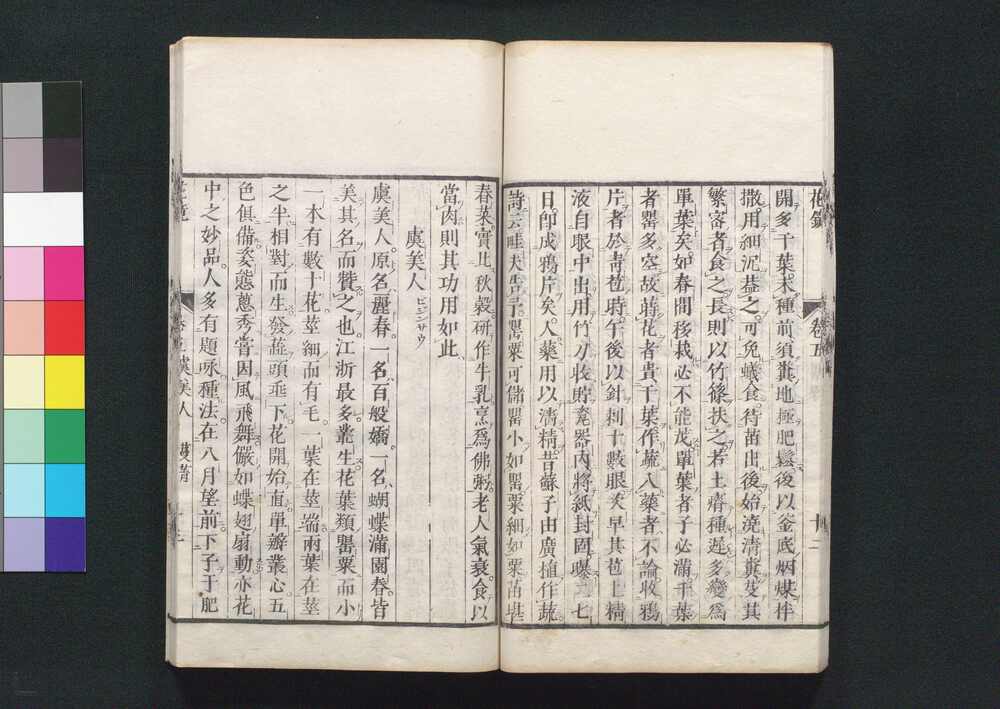 花鏡　卷五　十二
開多千葉。未種前須糞地極肥鬆後以釜底烟煤伴
撒用細泥葢之。可免蟻食。待苗出後。始澆清糞芟其
繁密者食之。長則以竹篠扶之。若土瘠種遲多變為
單葉矣。如春間移栽必不能茂。單葉者子必滿。千葉
者罌多空。故蒔花者貴千葉。作蔬八藥者。不論。收鴉
片者。於青苞時午後以針刺十數眼。次早其苞上精
液自眼中出用竹刀收貯甆器內。將紙封固曝二七
日。卽成鴉片矣。人藥用以濇精。昔蘇子由廣植作蔬。
詩云畦夫告予。罌粟可儲罌小如罌粟細如粟苗堪
春菜。實比秋穀。研作牛乳烹為佛粥。老人氣衰食以
當肉則其功用如此
虞美人ビジンサウ
虞美人。原名麗春。一名百般嬌。一名蝴蝶滿園春皆
美其名而贊之也。江浙最多叢生花葉類罌粟而小
一本有數十花莖細而有毛。一葉在莖端兩葉在莖
之半相對而生發蕋頭垂下。花開始直單瓣叢心五
色俱備姿態蔥秀嘗因風飛舞儼如蝶翅扇動亦花
中之妙品人多有題咏種法在八月望前下子于肥
虞美人